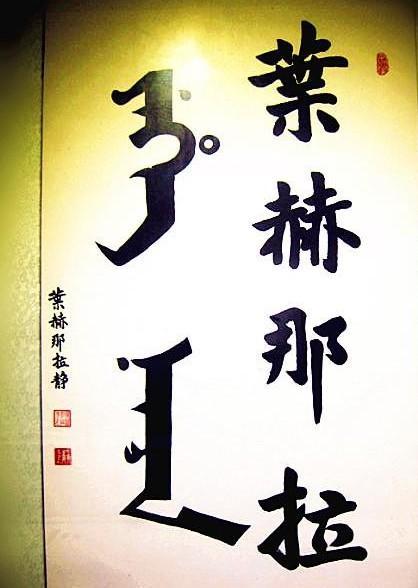 葉赫那拉
ᠶᡝᡥᡝ
ᠨᠠᡵᠠ
葉赫那拉静